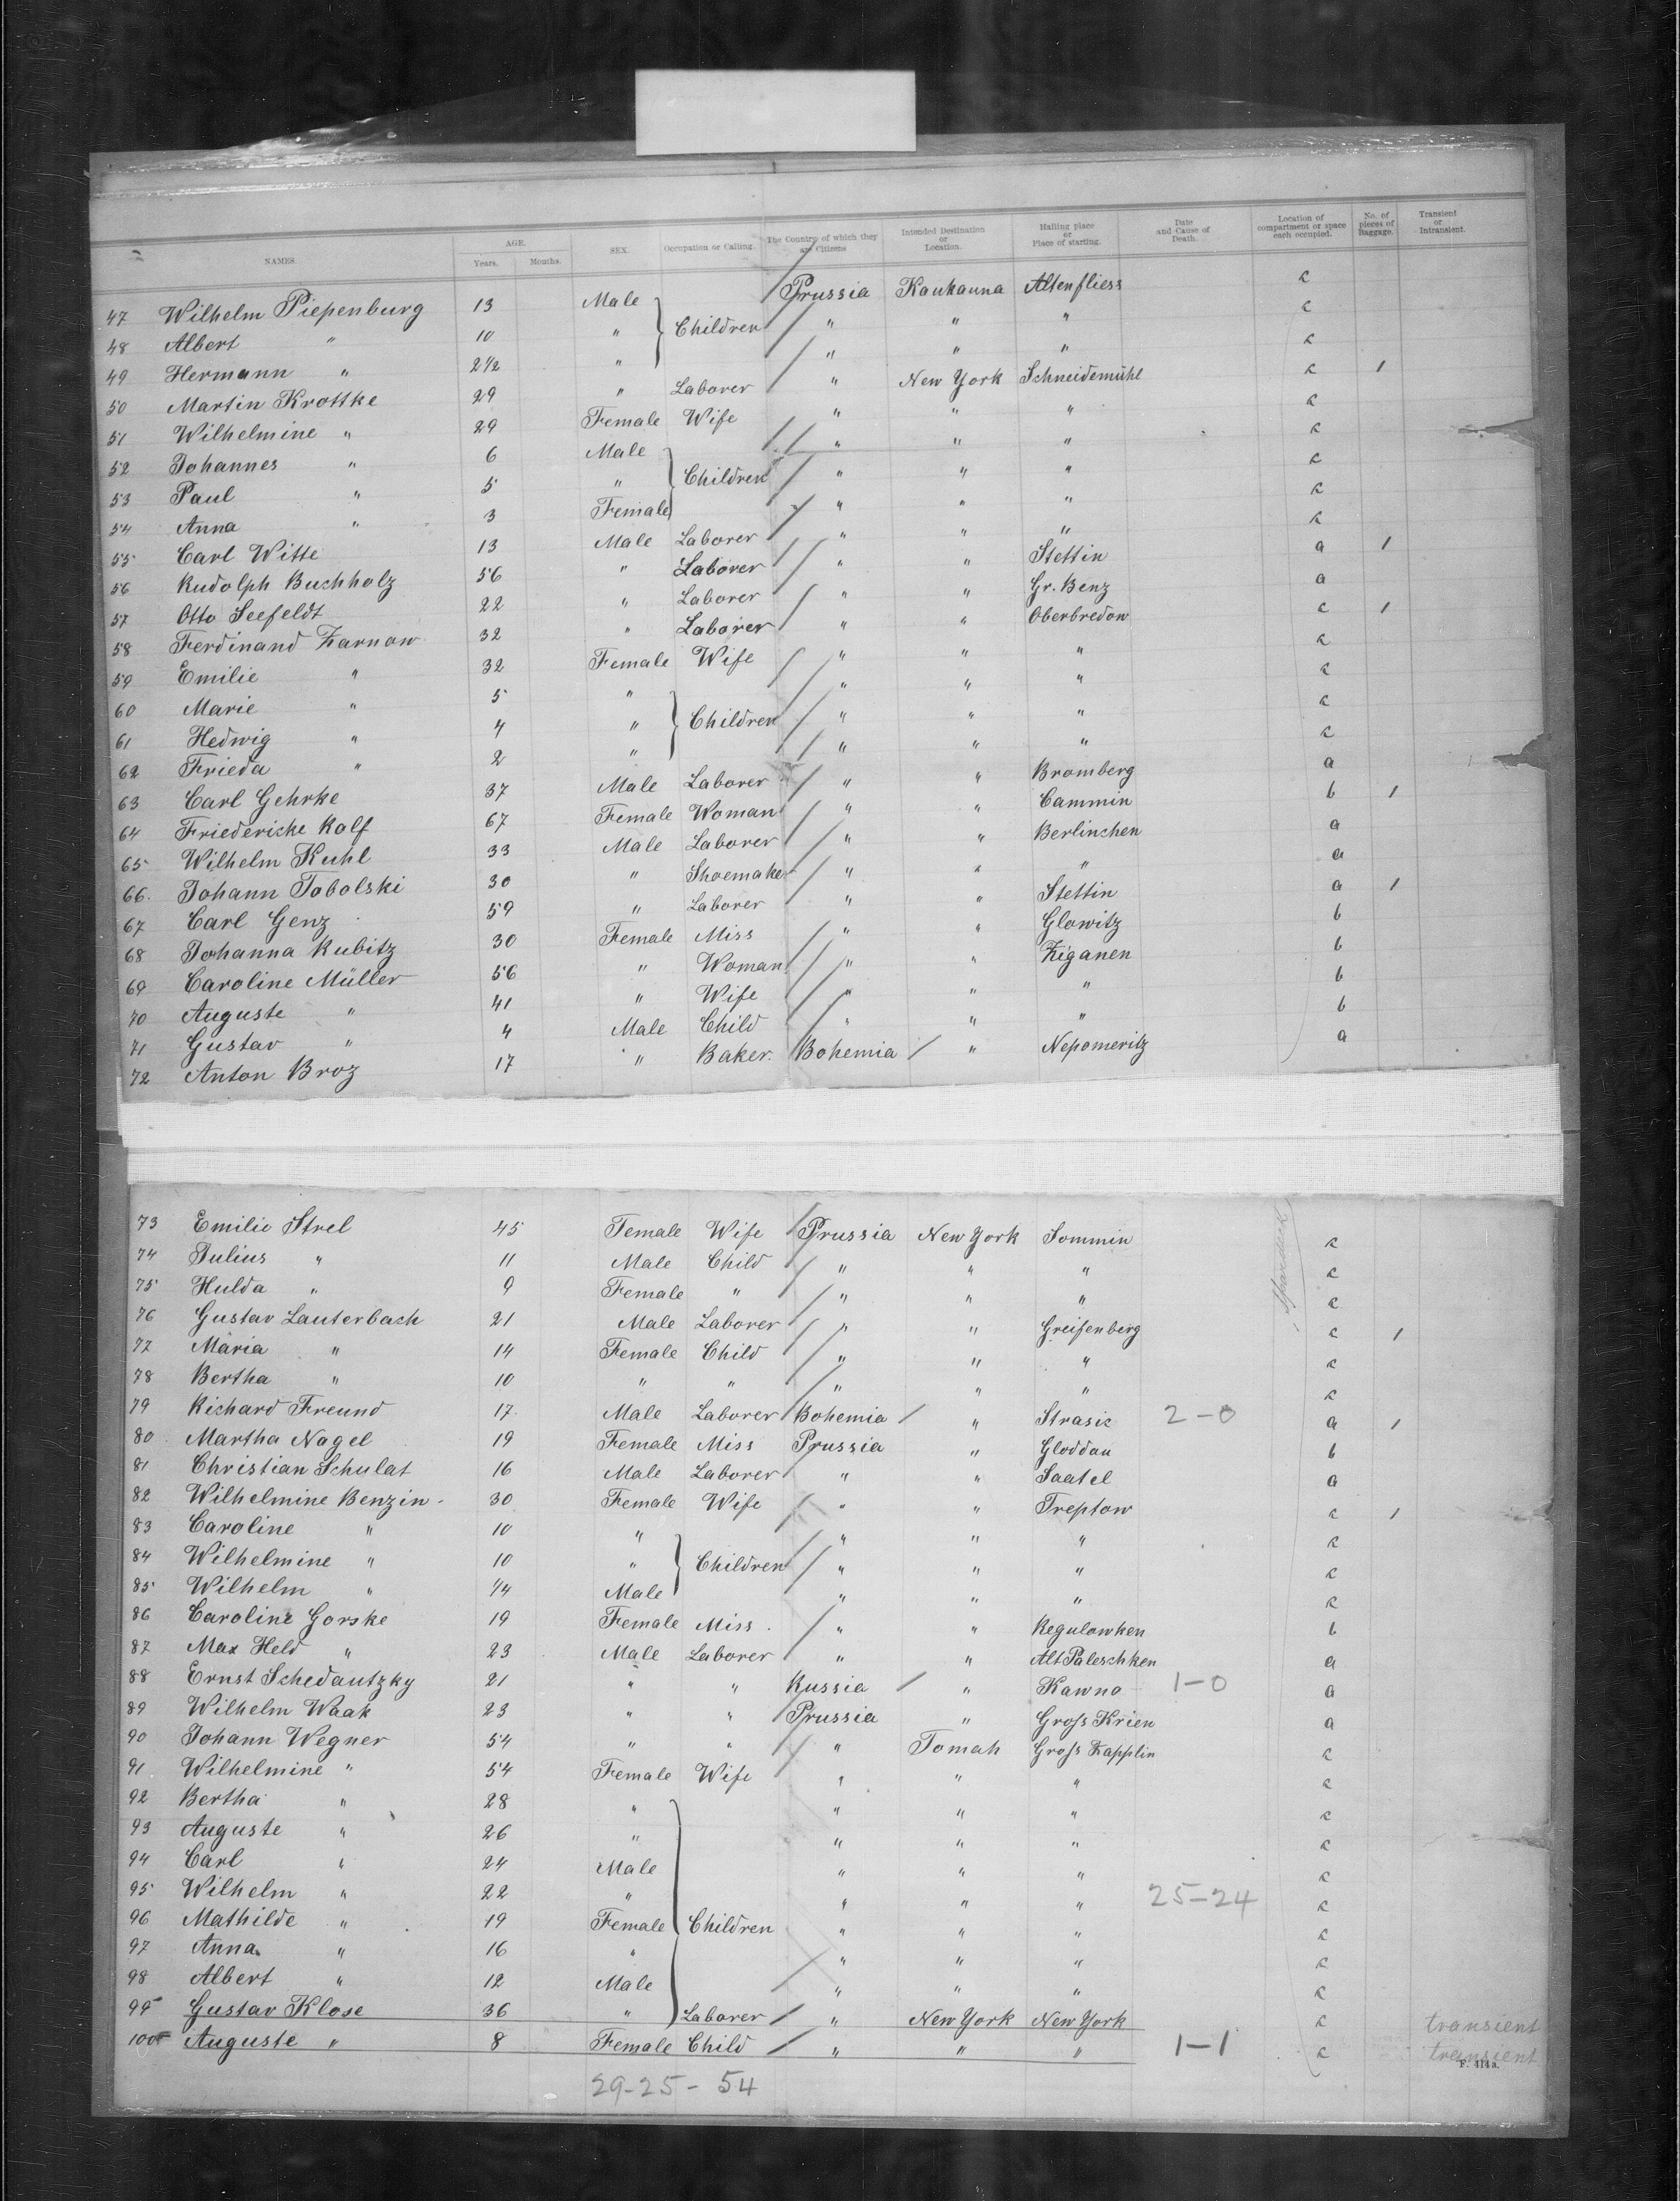 NAMES. AGE. Years. Months. SEX. Occupation or Calling. The Country of which they are Citizens Intended Destination or Location. Halling place or Place of starting. Date and Cause of Death. Location of compartment or space each occupied. No. of pieces of Baggage. Transient or Intransient.
47 Wilhelm Piepenburg 13 Male Prussia Kaukauna Altenfliess c
48 Albert " 10 " Children " " " c
49 Hermann " 2 1/2 " " " " c
50 Martin Krottke 29 " Laborer " New York Schneidemühl c 1
51 Wilhelmine " 29 Female Wife " " " c
52 Johannes " 6 Male " " " c
53 Paul " 5 " Children " " " c
54 Anna " 3 Female " " " c
55 Carl Witte 13 Male Laborer " " " c
56 Rudolph Buchholz 56 " Laborer " " Stettin a 1
57 Otto Seefeldt 22 " Laborer " " Gr. Benz a
58 Ferdinand Zarnow 32 " Laborer " " Oberbredow c 1
59 Emilie " 32 Female Wife " " " c
60 Marie " 5 " " " " c
61 Hedwig " 4 " Children " " " c
62 Frieda " 2 " " " " c
63 Carl Gehrke 37 Male Laborer " " Bromberg a
64 Friedericke Rolf 67 Female Woman " " Cammin b 1
65 Wilhelm Kuhl 33 Male Laborer " " Berlinchen a
66. Johann Tobolski 30 " Shoemaker " " " a
67 Carl Genz 59 " Laborer " " Stettin a 1
68 Johanna Kubitz 30 Female Miss " " Glowitz b
69 Caroline Müller 56 " Woman " " Ziganen b
70 Auguste " 41 " Wife " " " b
71 Gustav " 4 Male Child " " " b
72 Anton Broz 17 " Baker. Bohemia " Nepomeritz a
73 Emilie Strel 45 Female Wife Prussia New York Sommin c
74 Julius " 11 Male Child " " " c
75 Hulda " 9 Female " " " " c
76 Gustav Lauterbach 21 Male Laborer " " Greifenberg c 1
77 Maria " 14 Female Child " " " c
78 Bertha " 10 " " " " " c
79 Richard Freund 17 Male Laborer Bohemia " Strasic 2-0 a 1
80 Martha Nagel 19 Female Miss Prussia " Gloddau b
81 Christian Schulat 16 Male Laborer " " Saatel a
82 Wilhelmine Benzin 30 Female Wife " " Treptow c 1
83 Caroline " 10 " " " " c
84 Wilhelmine " 10 " Children " " " c
85 Wilhelm " 1/4 Male " " " c
86 Caroline Gorske 19 Female Miss " " Regulowken b
87 Max Held " 23 Male Laborer " " Alt Paleschken a
88 Ernst Schedautzky 21 " " Russia " Kawno 1-0 a
89 Wilhelm Waak 23 " " Prussia " Gross Krien a
90 Johann Wegner 54 " " " Tomah Gross Zapplin c
91 Wilhelmine " 54 Female Wife " " " c
92 Bertha " 28 " " " " c
93 Auguste " 26 " " " " c
94 Carl " 24 Male " " " c
95 Wilhelm " 22 " " " " 25-24 c
96 Mathilde " 19 Female Children " " " c
97 Anna " 16 " " " " c
98 Albert " 12 Male " " " c
99 Gustav Klose 36 " Laborer " New York New York c transient
100 Auguste " 8 Female Child " " " 1-1 c transient
F. 414a.
29-25-54